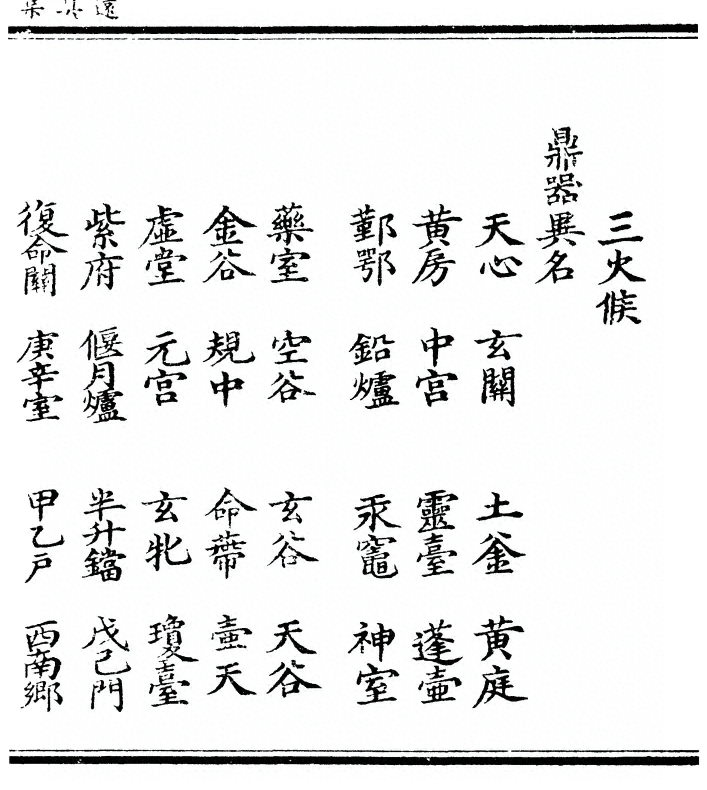 三火候
鼎器異名
天心 玄關 土釜 黃庭
黃房 中宮 靈臺 蓬壺
鄞鄂 鉛爐 汞竈 神室
藥室 空谷 玄谷 天谷
金谷 規中 命蔕 壺天
虛堂 元宮 玄牝 瓊臺
紫府 偃月爐 半升鐺 戊己門
復命關 庚辛室 甲乙戶 西南鄉